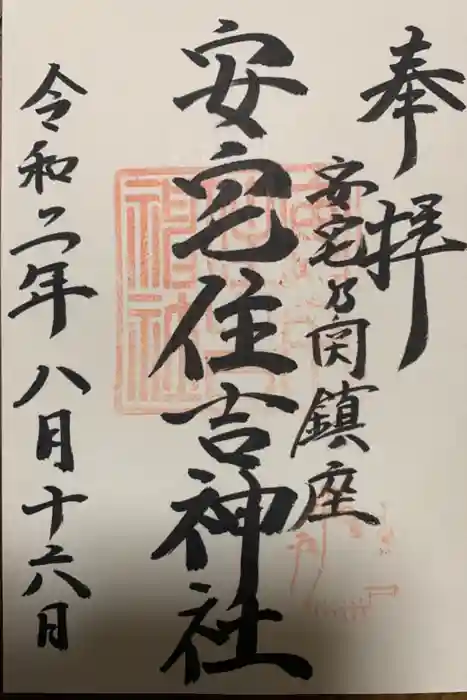 奉拝
安宅乃関鎮座
安宅住吉神社
令和二年八月十六日